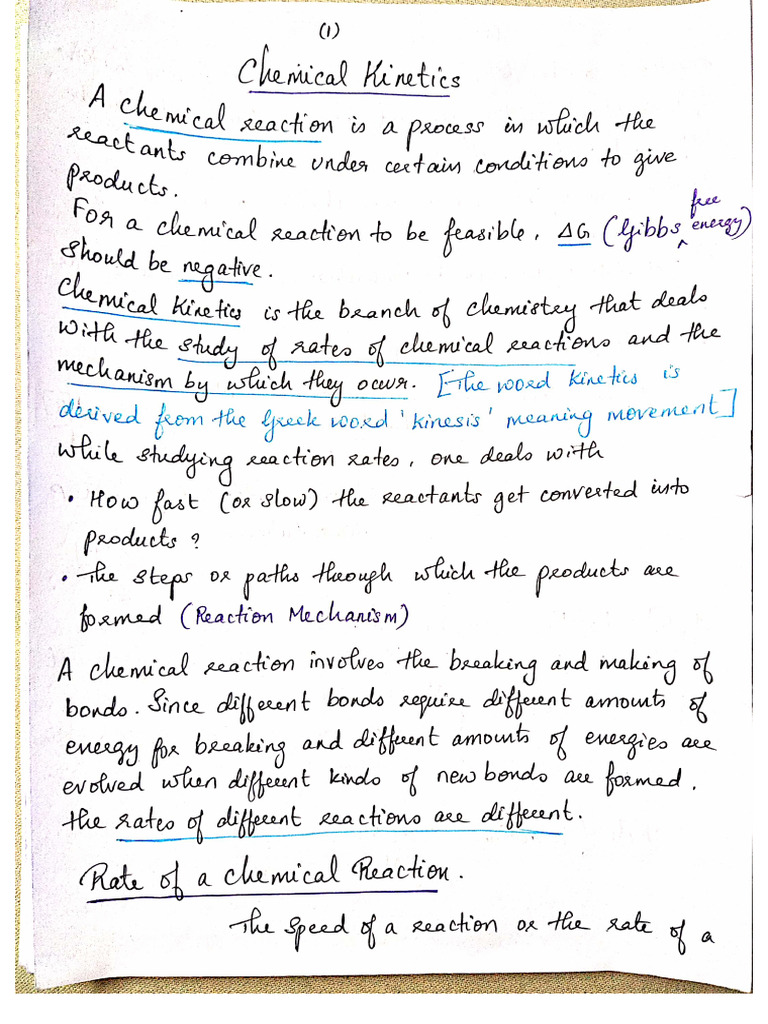 (1)
Chemical Kinetics
A chemical reaction is a process in which the
reactants combine under certain conditions to give
products.
For a chemical reaction to be feasible, ΔG (Gibbs free energy)
should be negative.
Chemical Kinetics is the branch of chemistry that deals
with the study of rates of chemical reactions and the
mechanism by which they occur. [The word kinetics is
derived from the Greek word 'kinesis' meaning movement]
While studying reaction rates, one deals with
• How fast (or slow) the reactants get converted into
products?
• The steps or paths through which the products are
formed (Reaction Mechanism)
A chemical reaction involves the breaking and making of
bonds. Since different bonds require different amounts of
energy for breaking and different amounts of energies are
evolved when different kinds of new bonds are formed,
the rates of different reactions are different.
Rate of a Chemical Reaction.
The speed of a reaction or the rate of a